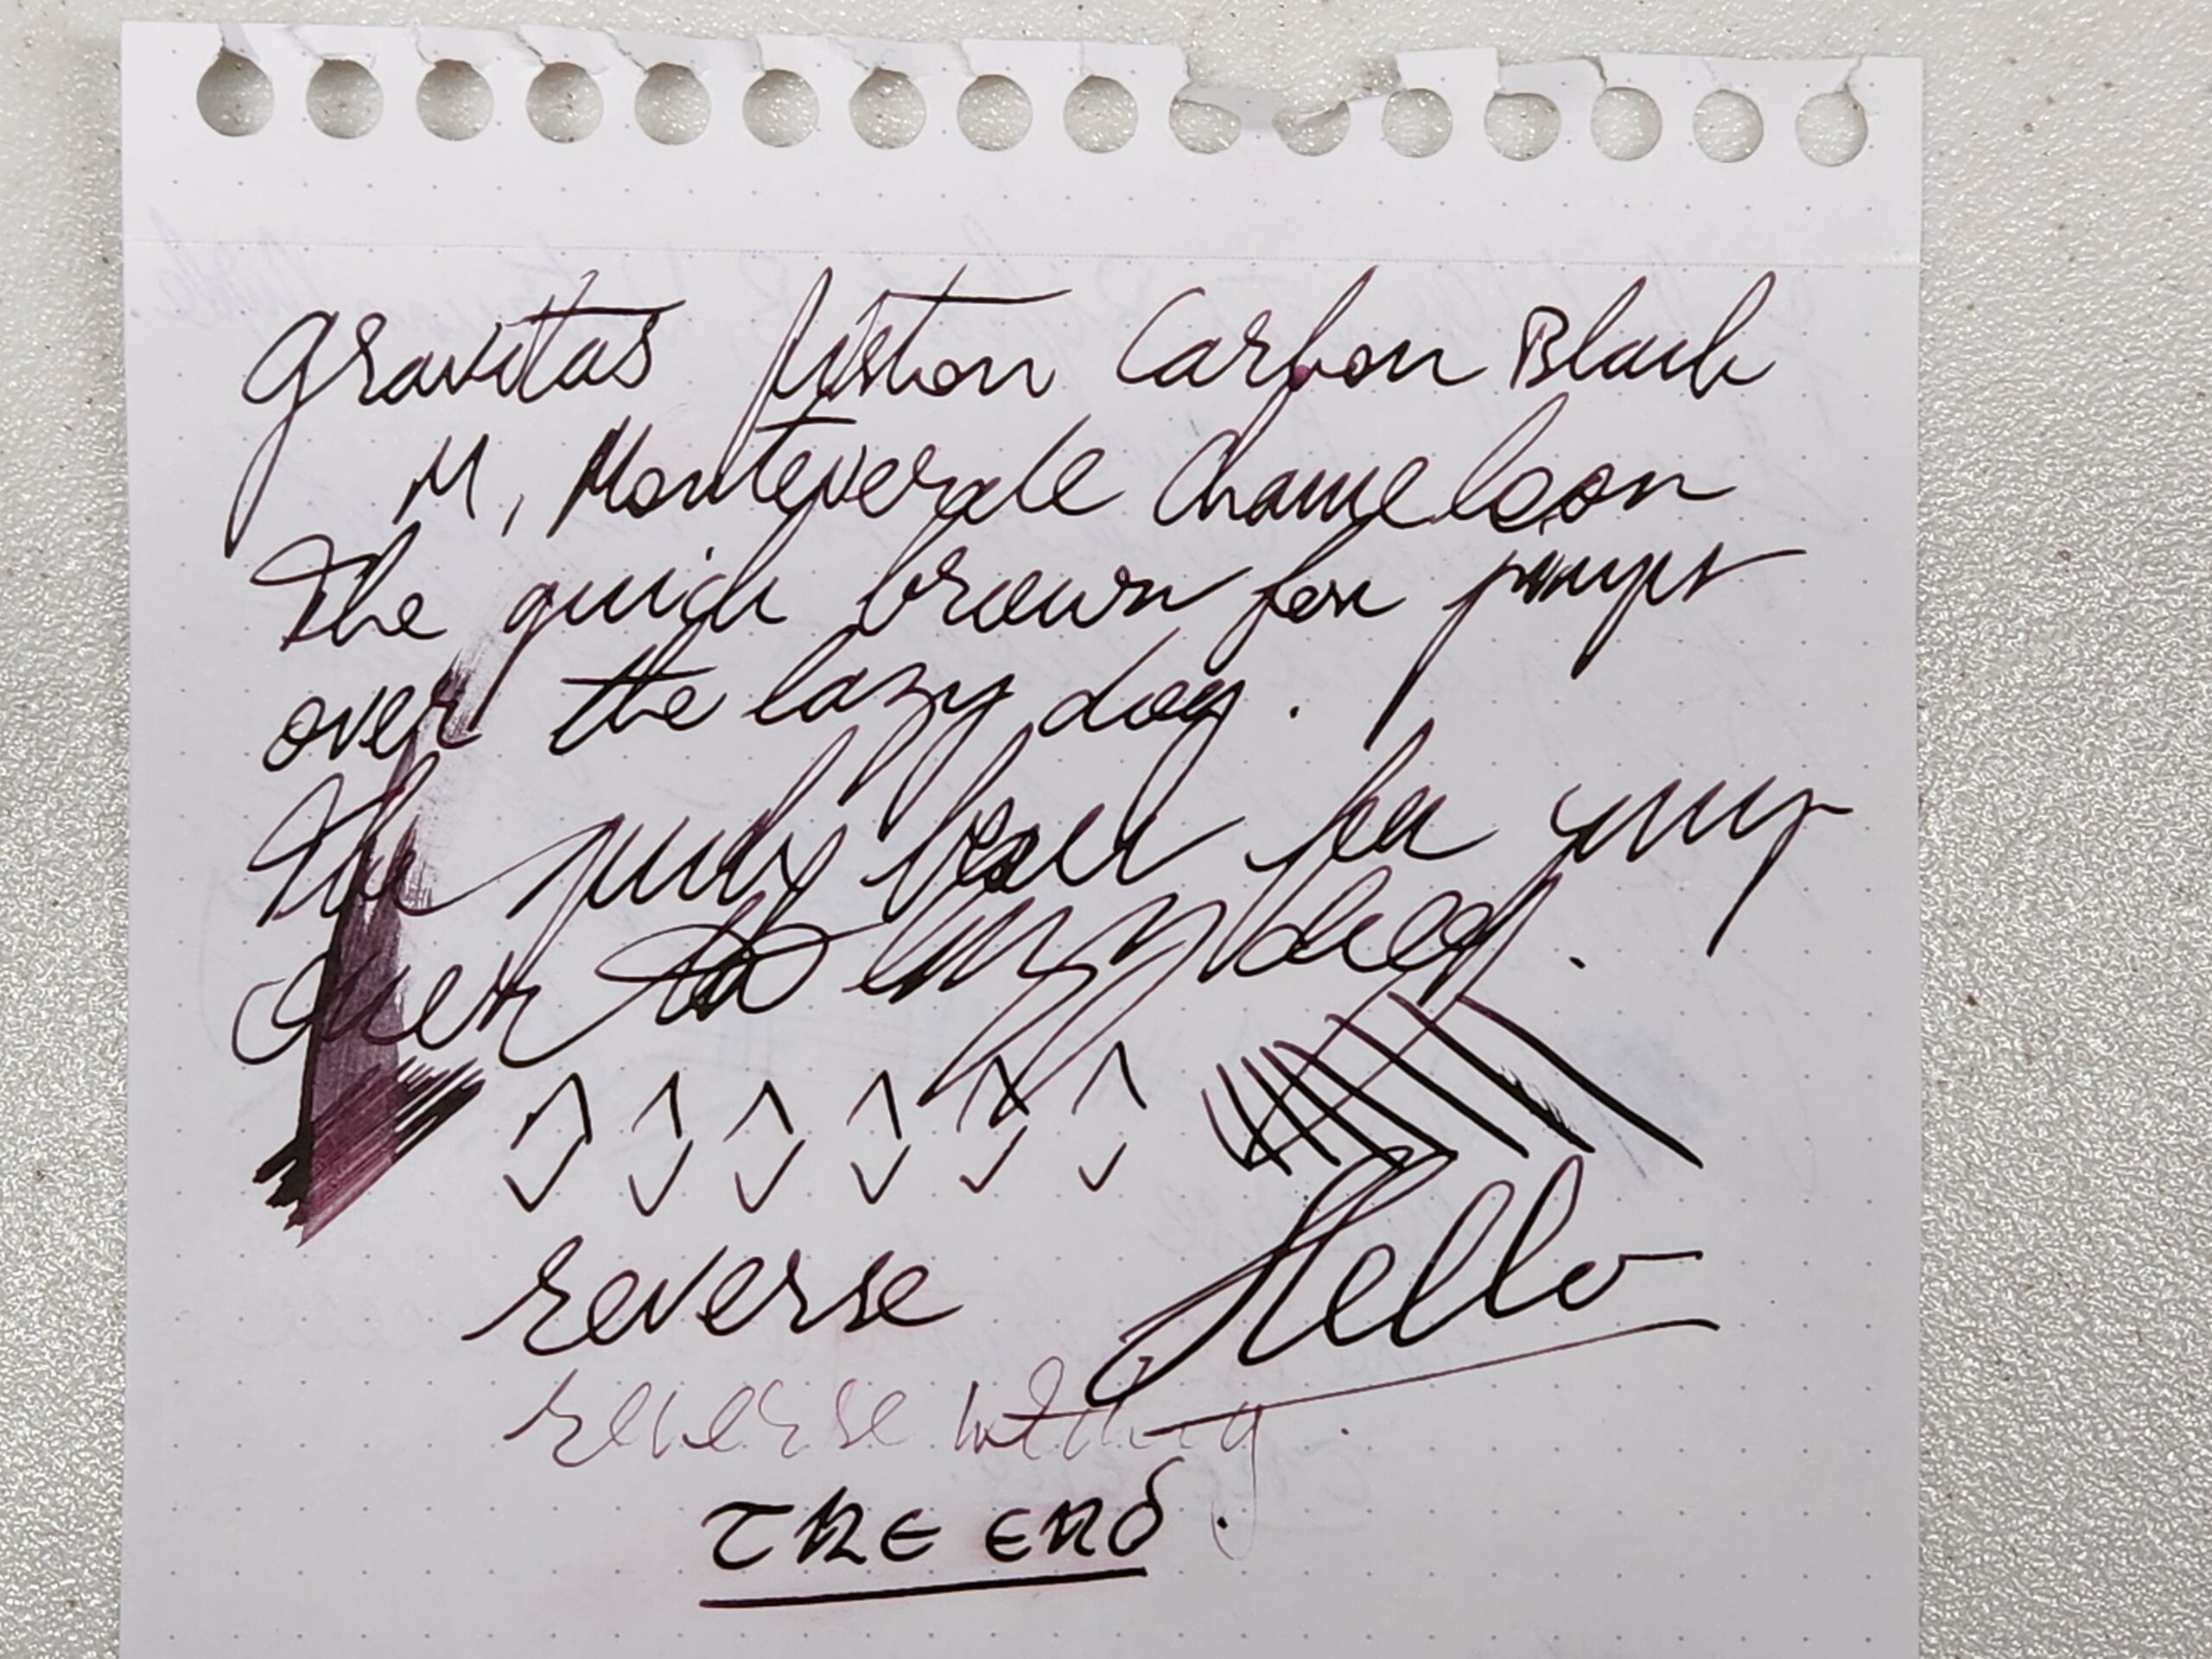 Gravitas Piston Carbon Black
M, Monteverde Chameleon
The quick brown fox jumps
over the lazy dog.
the
over the lazy dog.
reverse
Hello
reverse writing.
THE END.